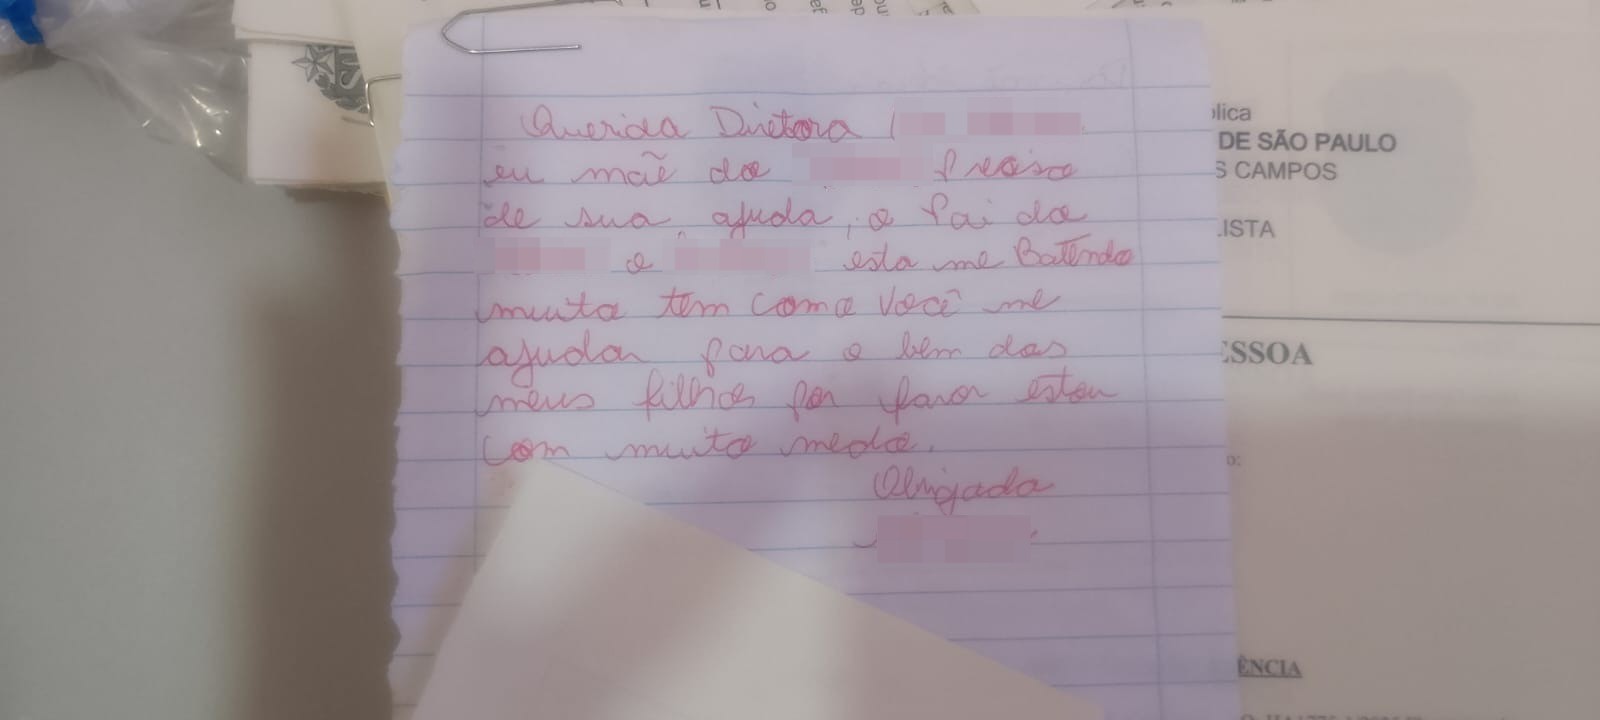 Querida Diretora
eu mãe do preciso
de sua ajuda, o pai do
e esta me Batendo
muito tem como você me
ajudar para o bem dos
meus filhos por favor estou
com muito medo.
Obrigada
US
lica
DE SÃO PAULO
S CAMPOS
LISTA
ESSOA
o:
ÊNCIA